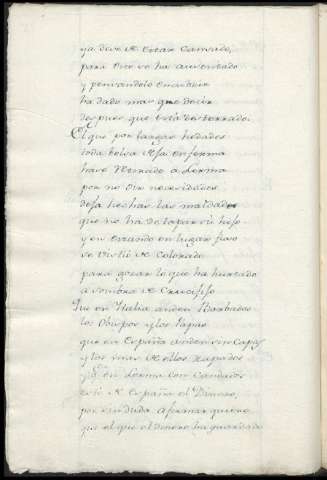 ya deve de estar cansado,
para Dios se ha ausentado
y pensandolo
ha dado mas que decir
despues que está desterrado.
El que por largas hedades
toda bolsa dexa enferma
hase retirado a Lerma
por no oir necesidades
dexa hechas las maldades
que no ha de tapar su hijo
y en estando en lugar fixo
se vistió de Colorado
para gozar lo que ha hurtado
a sombra de Crucifijo
Que en Italia anden Barbados
los Obispos y los Papas
que en España anden sin Capas
y los unos de ellos Rapados
y en Lerma con Candados
esté de España el Dinero,
por sin duda afirmar quiero
que el que el dinero ha guardado